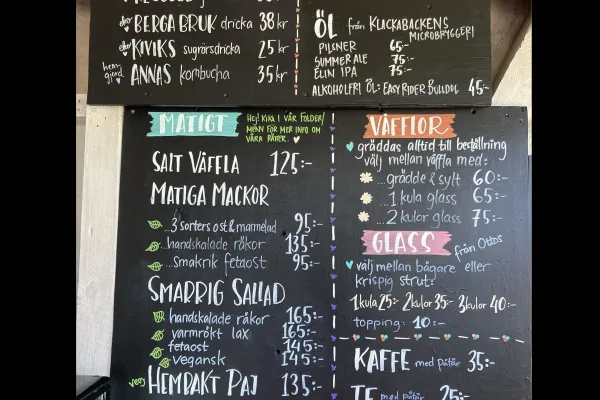 BERGA BRUK dricka 38 kr
KIVIKS sugrörsdricka 25 kr
hemgjord ANNAS kombucha 35 kr
ÖL från KLACKABACKENS MICROBRYGGERI
PILSNER 65:-
SUMMER ALE 75:-
ELIN IPA 75:-
ALKOHOLFRI ÖL: EASY RIDER BULLDOG 45:-
MATIGT
HEJ! KIKA I VÅR FOLDER/
MENY FÖR MER INFO OM
VÅRA RÄTTER.
SALT VÅFFLA 125:-
MATIGA MACKOR
...3 sorters ost & marmelad 95:-
...handskalade räkor 135:-
...smakrik fetaost 95:-
SMARRIG SALLAD
handskalade räkor 165:-
varmrökt lax 165:-
fetaost 145:-
vegansk 145:-
veg HEMBAKT PAJ 135:-
VÅFFLOR
gräddas alltid till beställning
välj mellan våffla med:
...grädde & sylt 60:-
...1 kula glass 65:-
...2 kulor glass 75:-
GLASS från Ottos
välj mellan bägare eller
krispig strut:
1 kula 25:- 2 kulor 35:- 3 kulor 40:-
topping: 10:-
KAFFE med påtår 35:-
TE med påtår 25:-